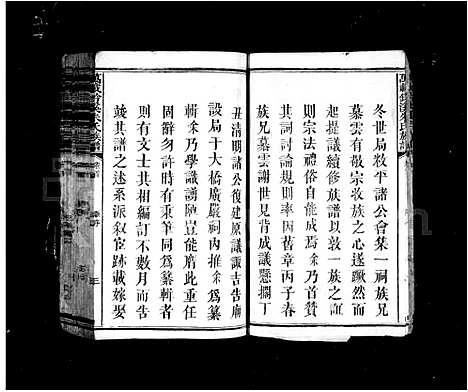 冬世局敉平諸公會集一祠族兄
慕雲有敬宗收族之心遂蹶然而
起提議續修族譜以敦一族之誼
則宗法禮俗自能成焉余乃首贊
其詞討論規則率因舊章丙子春
族兄慕雲謝世見背成議懸擱丁
丑清明諸公復建原議諏吉告廟
設局于大橋廣嚴祠內推余為纂
輯余乃學識譾陋豈能膺此重任
固辭勿許時有秉筆同為纂輯者
則有文士其相編訂不數月而告
竣其譜之述系派敘宦跡載嫁娶